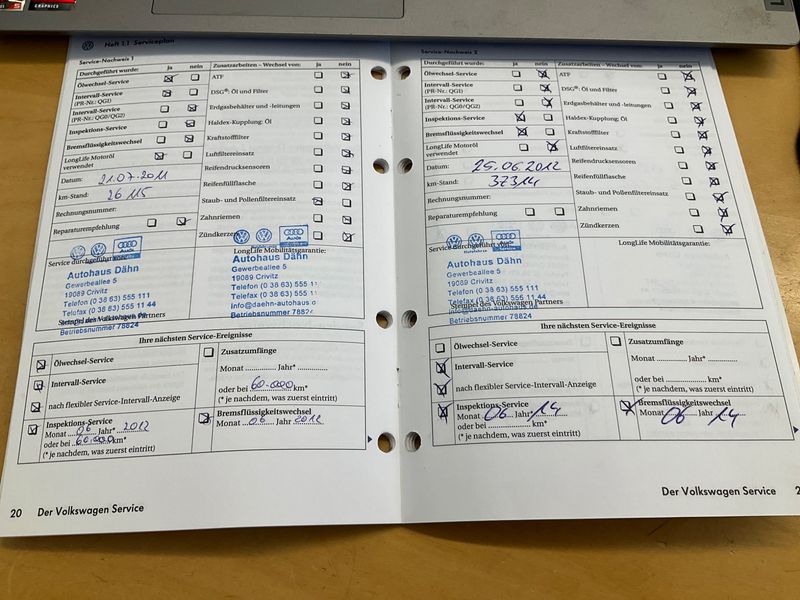 GRAPHICS
Heft 1.1 Serviceplan
Service-Nachweis 1
Durchgeführt wurde: ja nein
Ölwechsel-Service
Intervall-Service
(PR-Nr.: QG1)
Intervall-Service
(PR-Nr.: QG0/QG2)
Inspektions-Service
Bremsflüssigkeitswechsel
LongLife Motoröl
verwendet
Datum: 21.07.2011
km-Stand: 26 115
Rechnungsnummer:
Reparaturempfehlung
Zusatzarbeiten – Wechsel von: ja nein
ATF
DSG®: Öl und Filter
Erdgasbehälter und -leitungen
Haldex-Kupplung: Öl
Kraftstofffilter
Luftfiltereinsatz
Reifendrucksensoren
Reifenfüllflasche
Staub- und Pollenfiltereinsatz
Zahnriemen
Zündkerzen
Service durchgeführt von:
Autohaus Dähn
Gewerbeallee 5
19089 Crivitz
Telefon (0 38 63) 555 111
Telefax (0 38 63) 555 11 44
Stempel des Volkswagen Partners
Betriebsnummer 78824
LongLife Mobilitätsgarantie:
Audi
Autohaus Dähn
Gewerbeallee 5
19089 Crivitz
Telefon (0 38 63) 555 11
Telefax (0 38 63) 555 11
info@daehn-autohaus
Betriebsnummer 7882
Ihre nächsten Service-Ereignisse
Ölwechsel-Service
Intervall-Service
nach flexibler Service-Intervall-Anzeige
Inspektions-Service
Monat 06 Jahr* 2012
oder bei 60.000 km*
(* je nachdem, was zuerst eintritt)
Zusatzumfänge
Monat Jahr*
oder bei 60.000 km*
(* je nachdem, was zuerst eintritt)
Bremsflüssigkeitswechsel
Monat 06 Jahr 2012
20 Der Volkswagen Service
Service-Nachweis 2
Durchgeführt wurde: ja nein
Ölwechsel-Service
Intervall-Service
(PR-Nr.: QG1)
Intervall-Service
(PR-Nr.: QG0/QG2)
Inspektions-Service
Bremsflüssigkeitswechsel
LongLife Motoröl
verwendet
Datum: 25.06.2012
km-Stand: 37314
Rechnungsnummer:
Reparaturempfehlung
Zusatzarbeiten – Wechsel von: ja nein
ATF
DSG®: Öl und Filter
Erdgasbehälter und -leitungen
Haldex-Kupplung: Öl
Kraftstofffilter
Luftfiltereinsatz
Reifendrucksensoren
Reifenfüllflasche
Staub- und Pollenfiltereinsatz
Zahnriemen
Zündkerzen
Service durchgeführt von:
Audi
Autohaus Dähn
Gewerbeallee 5
19089 Crivitz
Telefon (0 38 63) 555 111
Telefax (0 38 63) 555 11 44
info@daehn-autohaus.de
Stempel des Volkswagen Partners
Betriebsnummer 78824
LongLife Mobilitätsgarantie:
Ihre nächsten Service-Ereignisse
Ölwechsel-Service
Intervall-Service
nach flexibler Service-Intervall-Anzeige
Inspektions-Service
Monat 06 Jahr* 14
oder bei km*
(* je nachdem, was zuerst eintritt)
Zusatzumfänge
Monat Jahr*
oder bei km*
(* je nachdem, was zuerst eintritt)
Bremsflüssigkeitswechsel
Monat 06 Jahr 14
Der Volkswagen Service